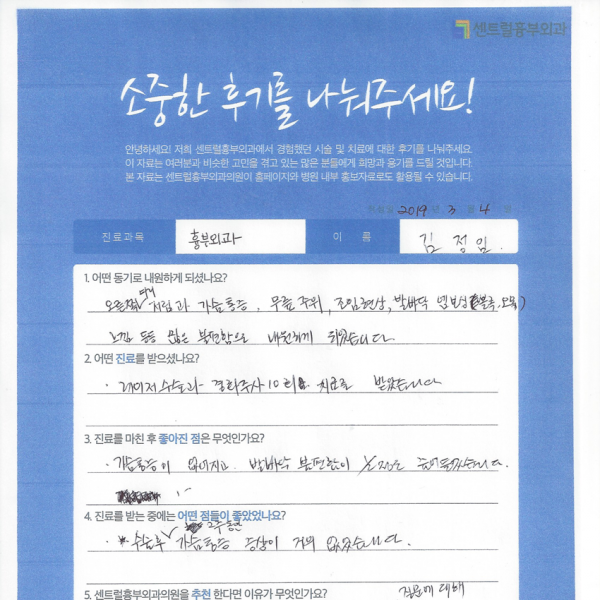 센트럴흉부외과
소중한 후기를 나눠주세요!
안녕하세요! 저희 센트럴흉부외과에서 경험했던 시술 및 치료에 대한 후기를 나눠주세요
이 자료는 여러분과 비슷한 고민을 겪고 있는 많은 분들에게 희망과 용기를 드릴 것입니다.
본 자료는 센트럴흉부외과의원이 홈페이지와 병원 내부 홍보자료로도 활용될 수 있습니다.
2019 년 3 월 4 일
진료과목 흉부외과 이 름 김정임.
1. 어떤 동기로 내원하게 되셨나요?
오른쪽 저림과 가슴통증, 무릎 주위, 조임현상, 발바닥
느낌 등등 많은 불편함으로 내원하게 되었습니다.
2. 어떤 진료를 받으셨나요?
· 레이저수술과 경화주사 10회 치료를 받았습니다
3. 진료를 마친 후 좋아진 점은 무엇인가요?
· 가슴통증이 없어지고 발바닥 불편함이
4. 진료를 받는 중에는 어떤 점들이 좋았었나요?
2주동안
· 수술후 가슴통증 증상이 거의 없었습니다.
5. 센트럴흉부외과의원을 추천 한다면 이유가 무엇인가요?
질문에 대해